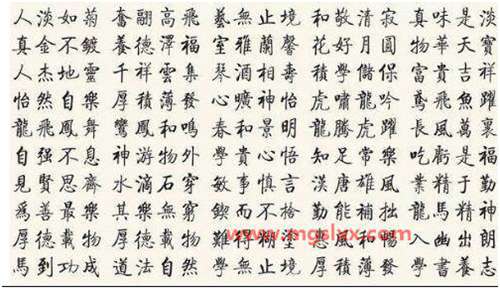 人淡如菊 奮翮高飛 藝無止境 和敬清寂 真味是淡
真金不鍍 養德澤福 室雅蘭馨 花好月圓 物華天寶
人杰地靈 千祥雲集 琴酒相壽 積學儲保 富貴吉祥
怡然自樂 厚積薄發 心曠神怡 虎嘯龍吟 鳶飛魚躍
龍飛鳳舞 鸞鳳和鳴 春和景明 龍騰虎躍 長風萬裏
自强不息 神游物外 學貴心悟 知足常樂 吃虧是福
見賢思齊 水滴石穿 敏事慎言 漢唐雄風 業精于勤
爲善最樂 其樂無窮 鍥而不捨 勤能補拙 龍馬精神
厚德載物 難得糊塗 惠風和暢
馬到功成 道法自然 學無止境 厚積薄發